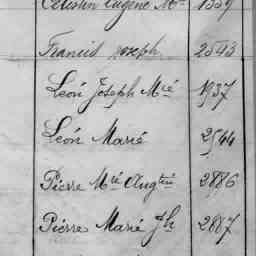 Célestin Eugène Mie 1339
Francis Joseph 2543
Léon Joseph Mié 1937
Léon Marie 2544
Pierre Mié Augtin 2886
Pierre Marie Jh 2887